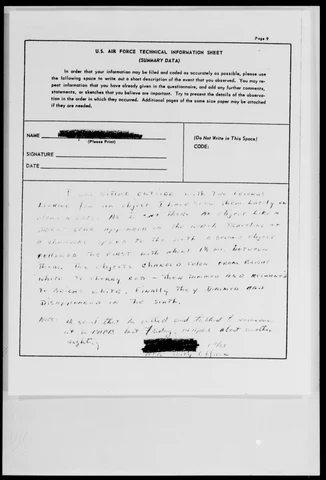 Page 9
U.S. AIR FORCE TECHNICAL INFORMATION SHEET
(SUMMARY DATA)
In order that your information may be filed and coded as accurately as possible, please use
the following space to write out a short description of the event that you observed. You may re-
peat information that you have already given in the questionnaire, and add any further comments,
statements, or sketches that you believe are important. Try to present the details of the observa-
tion in the order in which they occurred. Additional pages of the same size paper may be attached
if they are needed.
NAME
(Please Print)
SIGNATURE
DATE
(Do Not Write in This Space)
CODE:
I was sitting outside with
looking for an object I have
As I sat there an object like a
appeared in the north
to the south a second object
followed the first with about 15 min. between
them. The objects changed color from bright
white to cherry red - then dimmed and
to bright white. Finally they dimmed and
disappeared in the south.
NOTE: He said that he called and talked to someone
at last Friday, about another
sighting
Officer